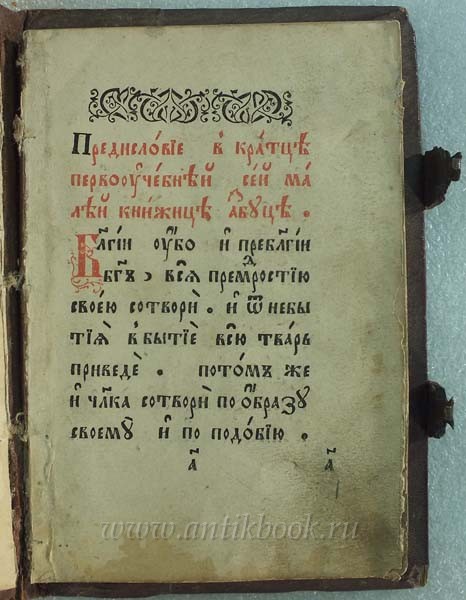 Предисло́вїе в кра́тцѣ
первоꙋче́бнѣй се́й ма́
лѣй кни́жицѣ а҆́збꙋцѣ .
Бл҃гі́и ᲂу҆́бо и҆ пребл҃гі́и
бг҃ъ , всѧ̀ премꙋ́дростїю
свое́ю сотворѝ . и҆ ѿ небы
тїѧ̀ в бытїѐ всю̀ тва́рь
приведѐ . пото́мъ же
и҆ чл҃ка сотворѝ по ѻ҆́бразꙋ
своемꙋ̀ и҆ по подо́бїю .
а҃ а҃
www.antikbook.ru